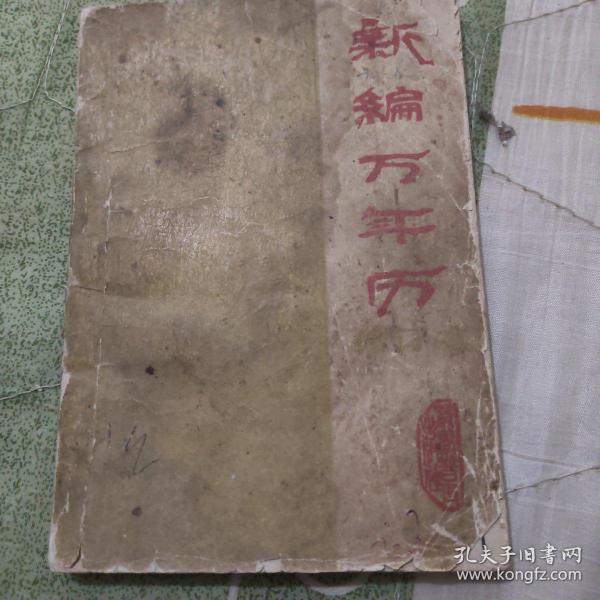 新编万年历
孔夫子旧书网
www.kongfz.com